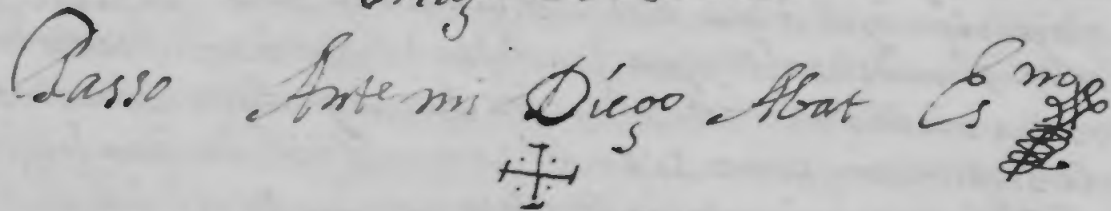 Passo Ante mi Diego Abat Esno